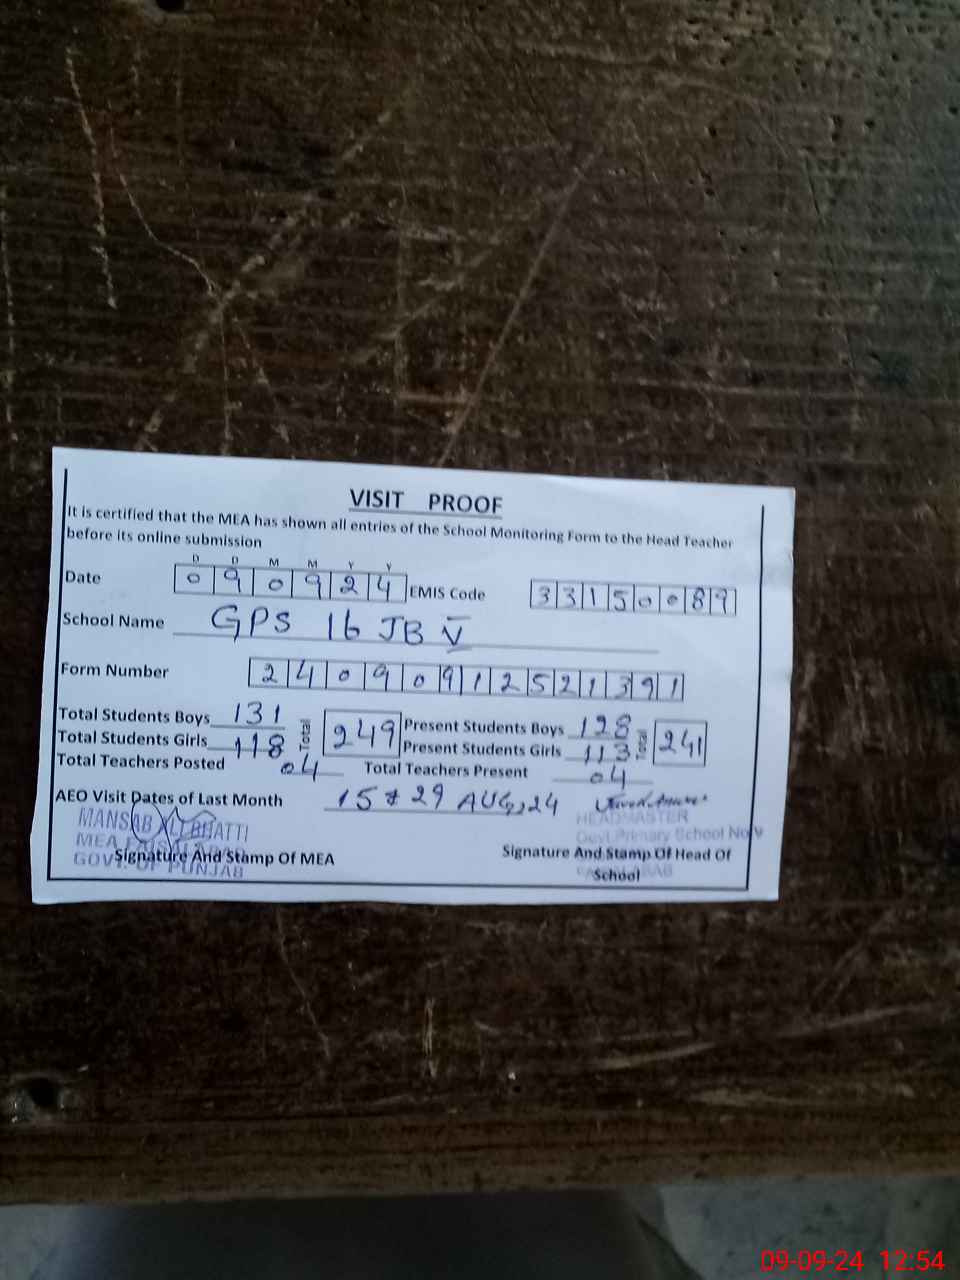 VISIT PROOF
It is certified that the MEA has shown all entries of the School Monitoring Form to the Head Teacher
before its online submission
D D M M Y Y
Date 0 9 0 9 2 4 EMIS Code 3 3 1 5 0 0 8 9
School Name GPS 16 JB V
Form Number 2 4 0 9 0 9 1 2 5 2 1 3 9 1
Total Students Boys 131 Total 249 Present Students Boys 128 Total 241
Total Students Girls 118 Present Students Girls 113
Total Teachers Posted 04 Total Teachers Present 04
AEO Visit Dates of Last Month 15 & 29 AUG, 24
MANSAB ALI BHATTI
MEA FAISALABAD
GOVT. OF PUNJAB
HEADMASTER
Govt Primary School No V
Signature And Stamp Of MEA Signature And Stamp Of Head Of
School
09-09-24 12:54